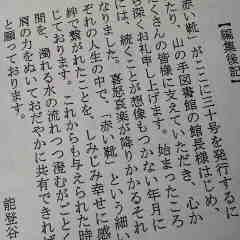 【編集後記】
「赤い靴」がここに三十号を発行するに
あたり、山の手図書館の館長様はじめ、
たくさんの皆様に支えていただき、心か
ら深くお礼申し上げます。始まったころ
は、続くことが想像もつかない年月に
なりました。喜怒哀楽が降りかかるそれ
ぞれの人生の中で、「赤い靴」という細い
絆で繋がれたことを、しみじみ幸せに感
じております。これからも与えられた時
間を、濁れる水の流れつつ澄むがごとく
肩の力をぬいておだやかに共有できれば
と願っております。
能登谷